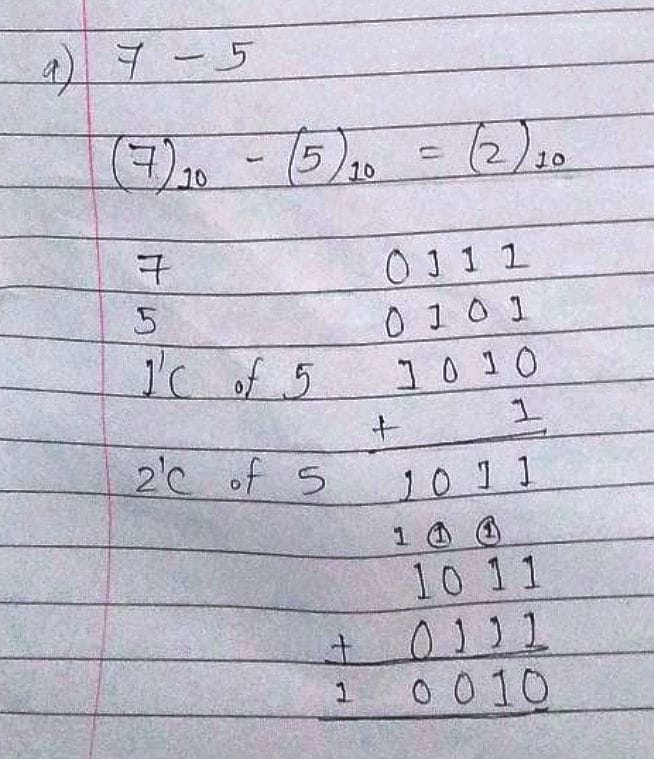 a) 7 - 5
(7)10 - (5)10 = (2)10
7 0111
5 0101
1'C of 5 1010
+ 1
2'C of 5 1011
1 1 1
1011
+ 0111
1 0010